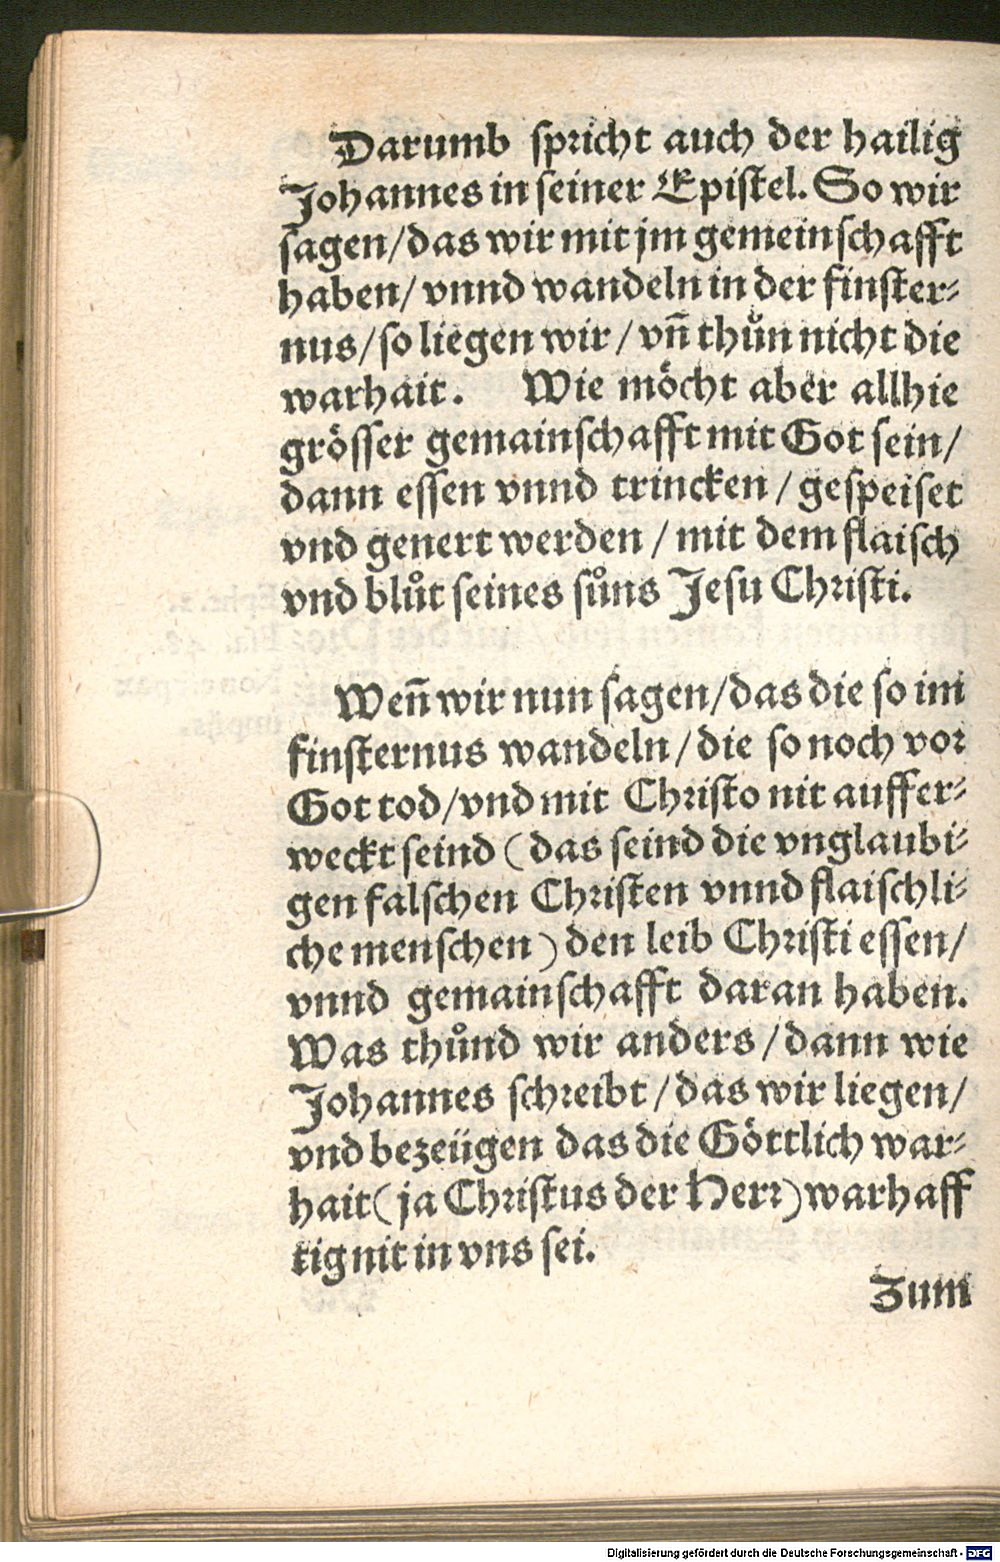 Darumb spricht auch der hailig
Johannes in seiner Epistel. So wir
sagen/das wir mit jm gemeinschafft
haben/ vnnd wandeln in der finster⸗
nus/so liegen wir / vñ thuͦn nicht die
warhait. Wie möcht aber allhie
grösser gemainschafft mit Got sein/
dann essen vnnd trincken / gespeiset
vnd genert werden / mit dem flaisch
vnd bluͦt seines suͦns Jesu Christi.
Weñ wir nun sagen/das die so im
finsternus wandeln/die so noch vor
Got tod/vnd mit Christo nit auffer⸗
weckt seind (das seind die vnglaubi⸗
gen falschen Christen vnnd flaischli⸗
che menschen) den leib Christi essen/
vnnd gemainschafft daran haben.
Was thuͦnd wir anders/dann wie
Johannes schreibt/das wir liegen/
vnd bezeügen das die Göttlich war⸗
hait(ja Christus der Herr)warhaff
tig nit in vns sei.
Zum
Digitalisierung gefördert durch die Deutsche Forschungsgemeinschaft - DFG